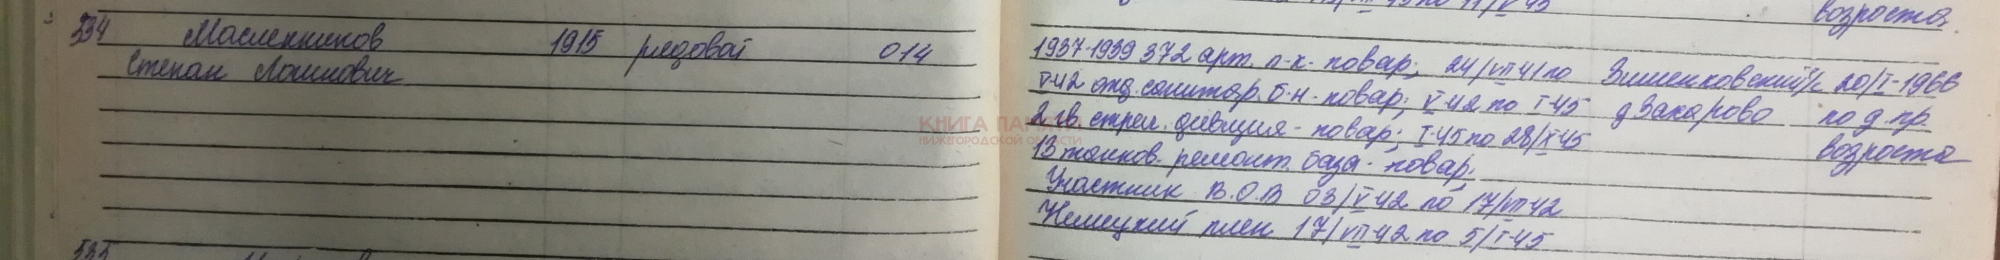 334 Масленников 1915 рядовой 014
Степан Логинович
возроста.
1937-1939 372 арт. п-к. повар; 24/VII 41 по Зименковский с/с 20/I-1966
V-42 отд. санитар. б-н. повар; V-42 по I-45 д Захарово по д. пр.
2 гв. стрел. дивизия - повар; I-45 по 28/X-45 возроста
13 танков. ремонт. база - повар.
Участник В.О.В 03/V-42 по 17/VII 42
Немецкий плен 17/VII 42 по 5/I-45
КНИГА ПАМЯТИ
НИЖЕГОРОДСКОЙ ОБЛАСТИ
335